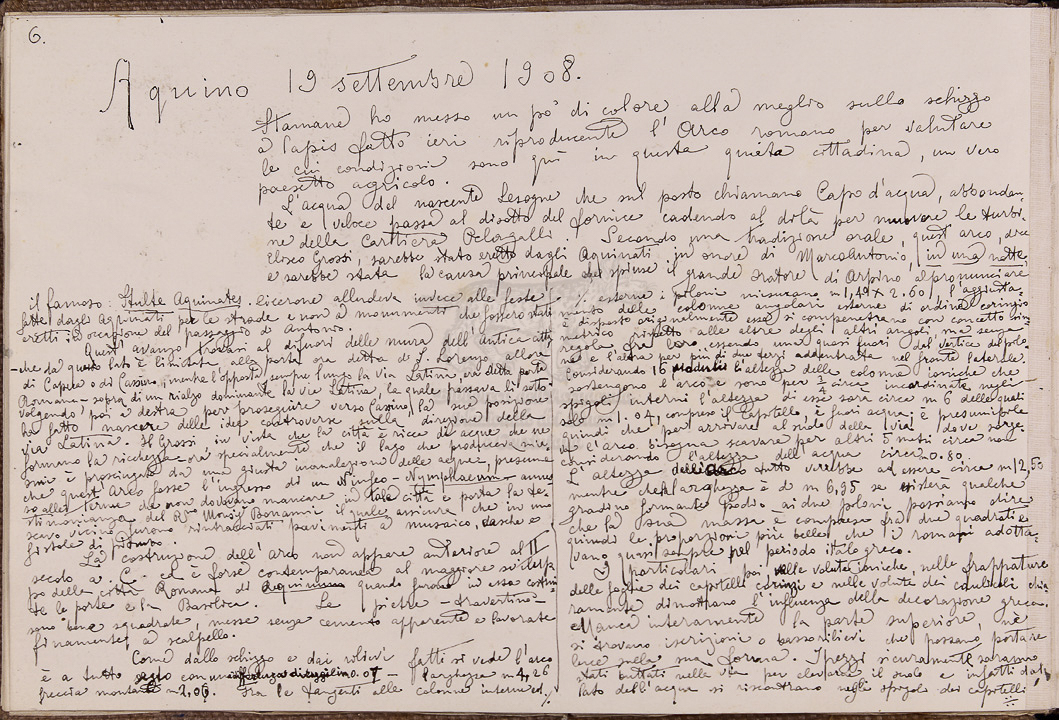 6.
Aquino 19 settembre 1908.
Stamane ho messo un pò di colore alla meglio sullo schizzo
a lapis fatto ieri riproducente l'Arco romano per valutare
le cui condizioni sono quì in questa quieta cittadina, un vero
paesetto agricolo.
L'acqua del nascente Lesogne che sul posto chiamano Capo d'acqua, abbondan-
te e veloce passa al disotto del fornice cadendo al di là per muovere le turbi-
ne della Cartiera Pelagalli. Secondo una tradizione orale, quest'arco, dice
Eliseo Grossi, sarebbe stato eretto dagli Aquinati in onore di Marcantonio, in una notte
e sarebbe stata la causa principale che spinse il grande oratore di Arpino a pronunciare
il famoso: Stulte Aquinates. Cicerone alludeva invece alle feste
fatte dagli Aquinati per le strade e non a monumenti che fossero stati
eretti in occasione del passaggio di Antonio.
Quest'avanzo trovasi al difuori delle mura dell'antica città
- che da questo lato è limitata alla porta ora detta di S. Lorenzo, allora
di Capua o di Cassino, mentre l'opposta sempre lungo la via Latina, era detta porta
Romana - sopra di un rialzo dominante la via Latina, la quale passava lì sotto
volgendo poi a destra per proseguire verso Cassino, la sua posizione
ha fatto nascere delle idee controverse sulla direzione della
via Latina. Il Grossi in vista che la città è ricca di acque che ne
formano la ricchezza ora specialmente che il lago che produceva mia-
smi è prosciugato da una giusta incanalazione delle acque, presume
che quest'Arco fosse l'ingresso di un Ninfeo - Nymphaeum - annes
so alle Terme che non dovevano mancare in tale città e porta la te-
stimonianza del Rmo Monsr Bonanni il quale assicura che in uno
scavo vicino furono rintracciati pavimenti a mosaico, vasche e
fistole di piombo.
La costruzione dell'arco non appare anteriore al II
secolo a. C. ed è forse contemporanea al maggiore svilup
po della città Romana di Aquinum quando furono in essa costrui
te le porte e la Basilica. Le pietre - travertino -
sono ben squadrate, messe senza cemento apparente e lavorate
finamente a scalpello.
Come dallo schizzo e dai rilievi fatti si vede l'arco
è a tutto sesto con una differenza di raggio in m 0.07 - larghezza m 4,26
freccia montata m 2,06. Fra le tangenti alle colonne interne ed
esterne i piloni misurano m 1,49 X 2.60, l'aggiusta-
mento delle colonne angolari esterne di ordine corinzio
è disposto originalmente esse si compenetrano con concetto sim
metrico rispetto alle altre degli altri angoli, ma senza
regola fra loro, essendo una quasi fuori del vertice del pilo
ne e l'altra per più di due terzi addentrata nel fronte laterale.
Considerando 16 moduli l'altezza delle colonne ioniche che
sostengono l'arco e sono per ½ circa incordinate negli
spigoli interni l'altezza di esse sarà circa m 6 delle quali
solo m 1.04, compreso il capitello, è fuori acqua; è presumibile
quindi che per arrivare al suolo della via dove sorge-
va l'arco bisogna scavare per altri 5 metri circa non
considerando l'altezza dell'acqua circa m 0.80.
L'altezza dell'arco tutto verrebbe ad essere circa m 12,50
mentre che la larghezza è di m 6,95 se esisterà qualche
gradino formante podio ai due piloni possiamo dire
che la sua massa è compresa fra due quadrati e
quindi le proporzioni più belle che i romani adotta-
vano quasi sempre nel periodo italo greco.
I particolari poi, nelle volute ioniche, nelle frappature
delle foglie dei capitelli corinzi e nelle volute dei caulicoli, chia
ramente dimostrano l'influenza della decorazione greca.
Manca interamente la parte superiore, nè
si trovano iscrizioni o bassorilievi che possano portare
luce sulla sua forma. I pezzi sicuramente saranno
stati buttati nella via per elevare il suolo e infatti dal
lato dell'acqua si riscontrano negli spigoli dei capitelli